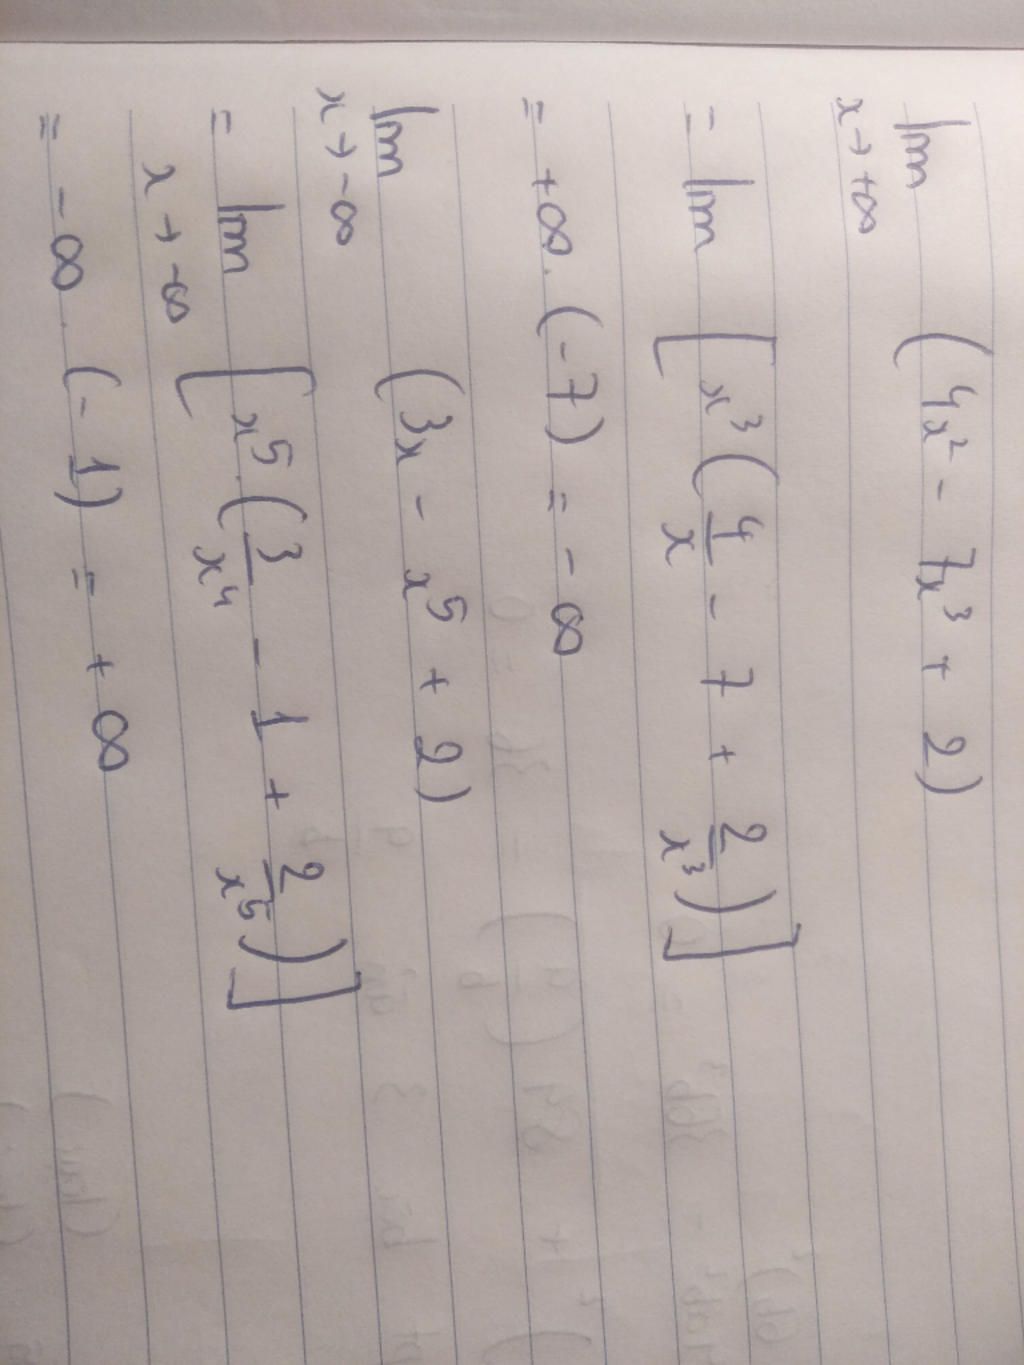 lim (4x² - 7x³ + 2)
x → +∞
= lim [x³(4/x - 7 + 2/x³)]
= +∞ . (-7) = -∞
lim (3x - x⁵ + 2)
x → -∞
= lim [x⁵.(3/x⁴ - 1 + 2/x⁵)]
x → -∞
= -∞ . (-1) = +∞